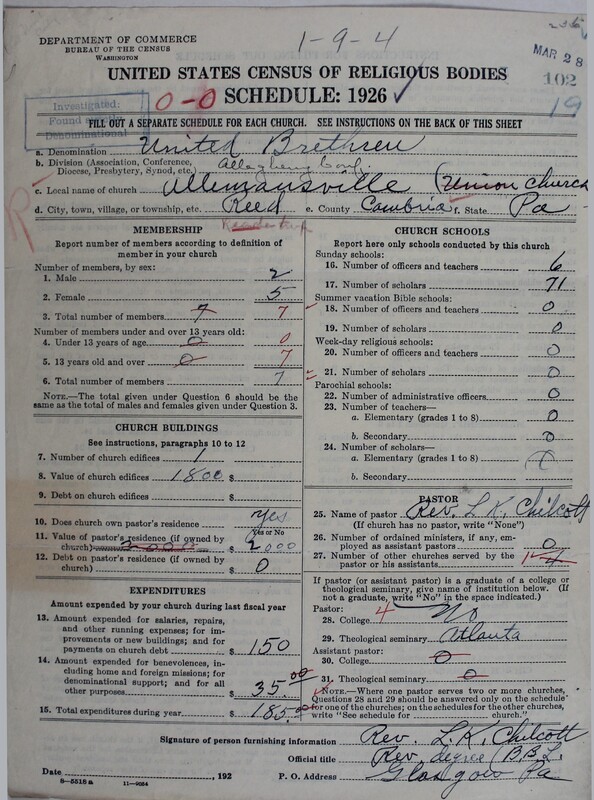 DEPARTMENT OF COMMERCE
BUREAU OF THE CENSUS
WASHINGTON
1-9-4
MAR 28
102
19
UNITED STATES CENSUS OF RELIGIOUS BODIES
SCHEDULE: 1926 ✓
Investigated:
Found
Denominational
0-0
FILL OUT A SEPARATE SCHEDULE FOR EACH CHURCH. SEE INSTRUCTIONS ON THE BACK OF THIS SHEET
a. Denomination United Brethren
b. Division (Association, Conference, Diocese, Presbytery, Synod, etc.) Allegheny Conf.
c. Local name of church Allemansville (Union Church
d. City, town, village, or township, etc. Reed e. County Cambria f. State Pa
MEMBERSHIP
Report number of members according to definition of
member in your church
Number of members, by sex:
1. Male 2
2. Female 5
3. Total number of members 7 7
Number of members under and over 13 years old:
4. Under 13 years of age 0 0
5. 13 years old and over 0 7
6. Total number of members 7
NOTE.—The total given under Question 6 should be
same as the total of males and females given under Question 3.
CHURCH BUILDINGS
See instructions, paragraphs 10 to 12
7. Number of church edifices 1
8. Value of church edifices 1800 $
9. Debt on church edifices $
10. Does church own pastor's residence yes
Yes or No
11. Value of pastor's residence (if owned by
church) $ 2000
12. Debt on pastor's residence (if owned by
church) $ 0
EXPENDITURES
Amount expended by your church during last fiscal year
13. Amount expended for salaries, repairs,
and other running expenses; for im-
provements or new buildings; and for
payments on church debt $ 150
14. Amount expended for benevolences,
including home and foreign missions; for
denominational support; and for all
other purposes $ 35.00
15. Total expenditures during year $ 185.00
CHURCH SCHOOLS
Report here only schools conducted by this church
Sunday schools:
16. Number of officers and teachers 6
17. Number of scholars 71
Summer vacation Bible schools:
18. Number of officers and teachers 0
19. Number of scholars 0
Week-day religious schools:
20. Number of officers and teachers 0
21. Number of scholars 0
Parochial schools:
22. Number of administrative officers 0
23. Number of teachers—
a. Elementary (grades 1 to 8) 0
b. Secondary 0
24. Number of scholars—
a. Elementary (grades 1 to 8) 0
b. Secondary
PASTOR
25. Name of pastor Rev. L. K. Chilcott
(If church has no pastor, write "None")
26. Number of ordained ministers, if any, em-
ployed as assistant pastors 0
27. Number of other churches served by the
pastor or his assistants
If pastor (or assistant pastor) is a graduate of a college or
theological seminary, give name of institution below. (If
not a graduate, write "No" in the space indicated.)
Pastor: 4
28. College No
29. Theological seminary Atlanta
Assistant pastor:
30. College 0
31. Theological seminary 0
NOTE.—Where one pastor serves two or more churches,
Questions 28 and 29 should be answered only on the schedule
for one of the churches; on the schedules for the other churches,
write "See schedule for church."
Signature of person furnishing information Rev. L. K. Chilcott
Official title Rev. degree (B.B.L.
Date , 192 P. O. Address Glasgow Pa
8—5518 a 11—9684